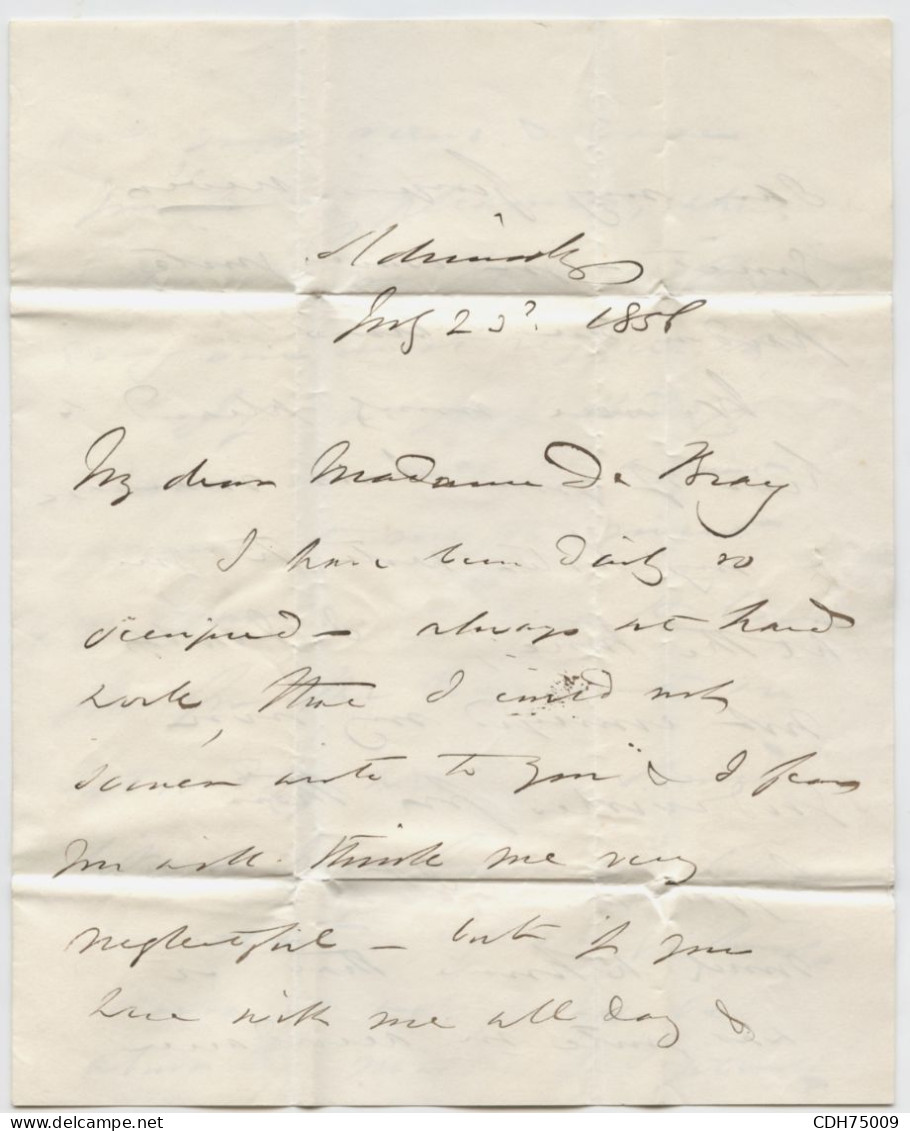 July 23d. 1858
My dear Madame De Bray
I have been daily so
occupied - always at hard
work, that I could not
sooner write to you & I fear
you will think me very
neglectful - but if you
were with me all day &
CDH75009